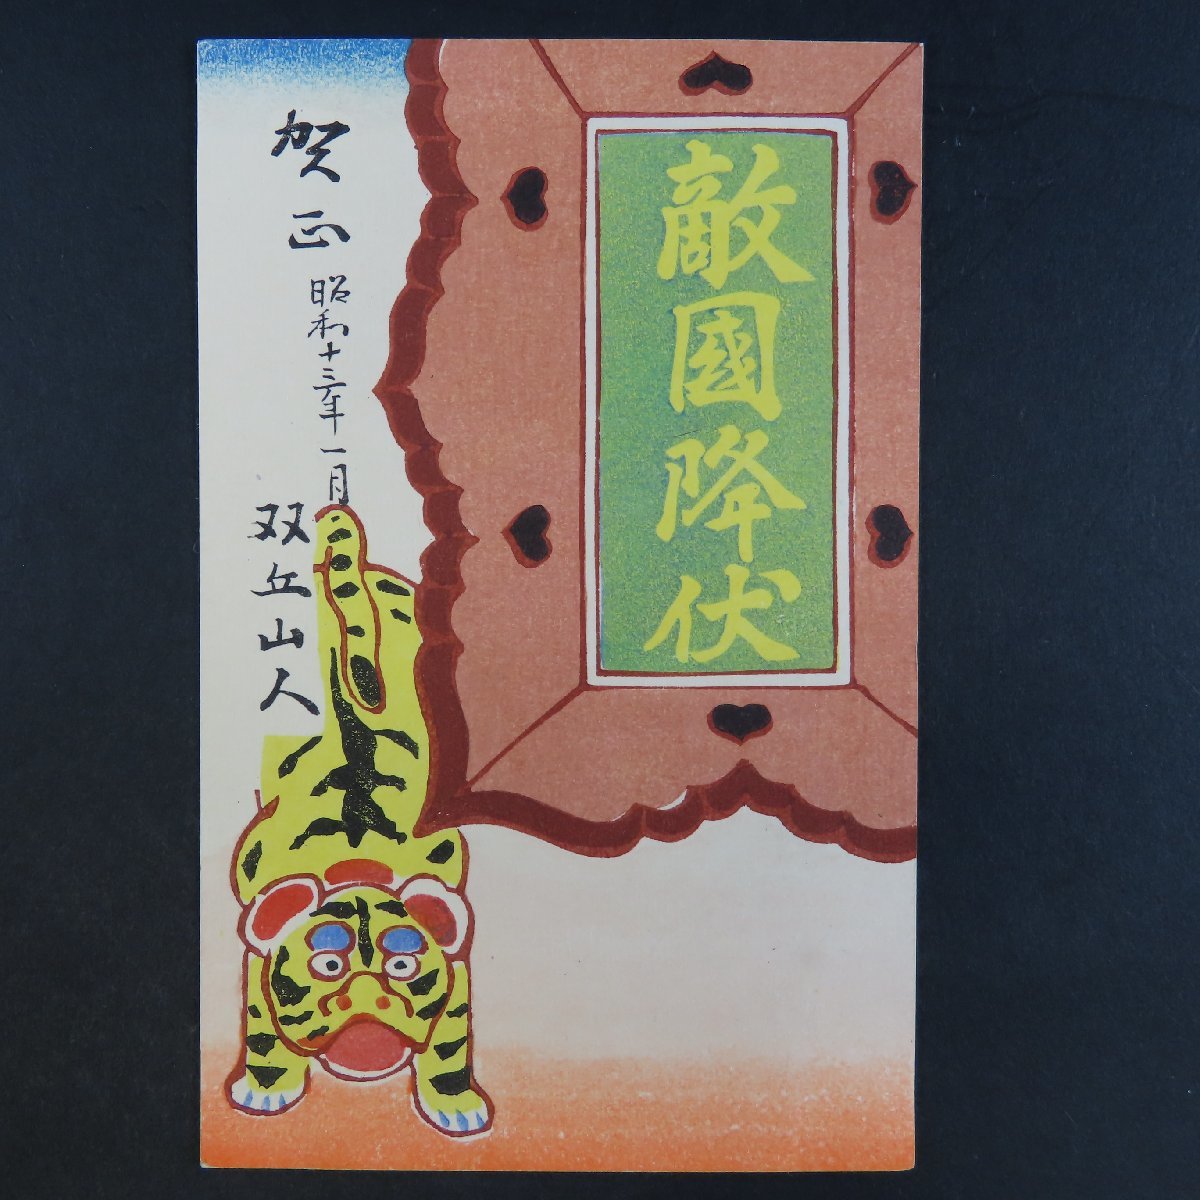 敵國降伏
賀正
昭和十三年一月
双丘山人